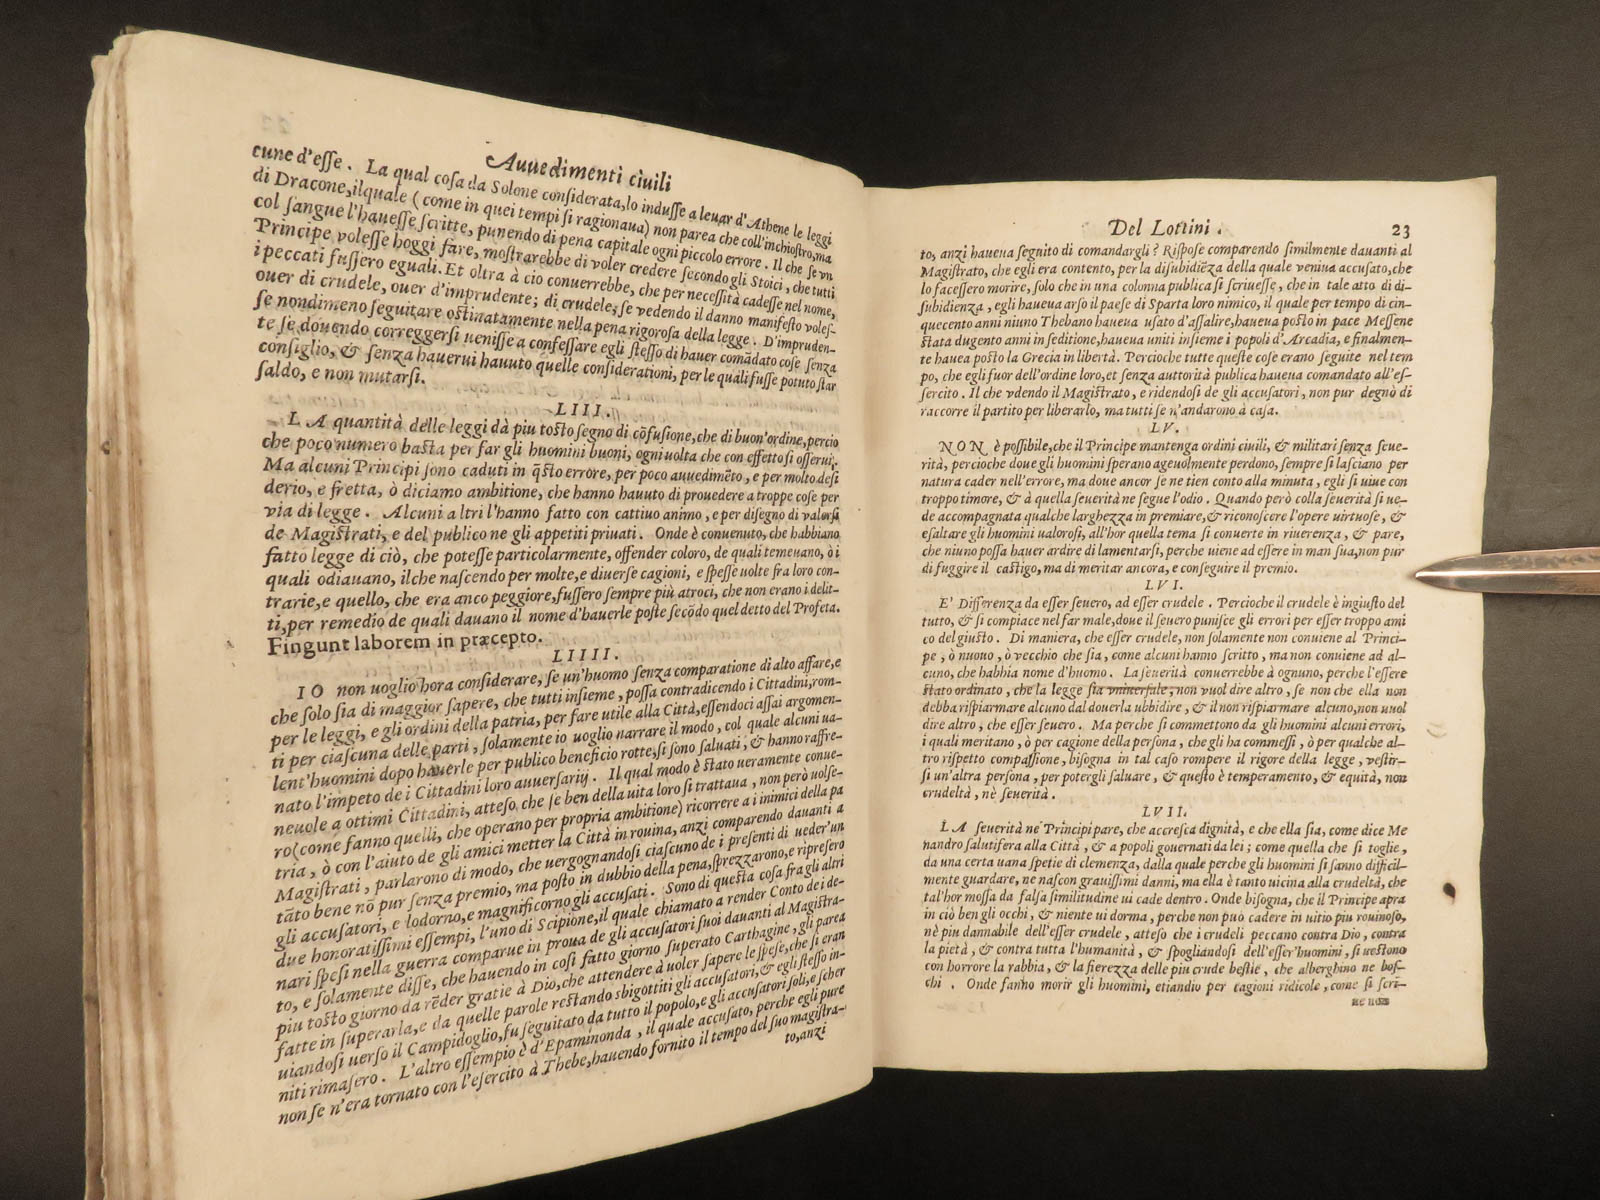 Auuedimenti ciuili
cune d'esse. La qual cosa da Solone considerata, lo indusse a leuar d'Athene le leggi
di Dracone, ilquale (come in quei tempi si ragionaua) non parea che coll'inchiostro, ma
col sangue l'hauesse scritte, punendo di pena capitale ogni piccolo errore. Il che se vn
Principe volesse hoggi fare, mostrarebbe di voler credere secondo gli Stoici, che tutti
i peccati fussero eguali. Et oltra à ciò conuerrebbe, che per necessità cadesse nel nome,
ouer di crudele, ouer d'imprudente; di crudele, se vedendo il danno manifesto voles-
se nondimeno seguitare ostinatamente nella pena rigorosa della legge. D'impruden-
te se douendo correggersi uenisse a confessare egli stesso di hauer comādato cose senza
consiglio, & senza hauerui hauuto quelle considerationi, per le quali fusse potuto star
saldo, e non mutarsi.
LIII.
LA quantità delle leggi dà piu tosto segno di cōfusione, che di buon'ordine, percio
che poco numero basta per far gli huomini buoni, ogni uolta che con effetto si osserui.
Ma alcuni Principi sono caduti in q̃sto errore, per poco auuedimēto, e per molto desi
derio, e fretta, ò diciamo ambitione, che hanno hauuto di prouedere a troppe cose per
via di legge. Alcuni altri l'hanno fatto con cattiuo animo, e per disegno di valersi
de Magistrati, e del publico ne gli appetiti priuati. Onde è conuenuto, che habbiano
fatto legge di ciò, che potesse particolarmente, offender coloro, de quali temeuano, ò i
quali odiauano, ilche nascendo per molte, e diuerse cagioni, e spesse uolte fra loro con-
trarie, e quello, che era anco peggiore, fussero sempre più atroci, che non erano i delit-
ti, per remedio de quali dauano il nome d'hauerle poste secōdo quel detto del Profeta.
Fingunt laborem in præcepto.
LIIII.
IO non uoglio hora considerare, se un'huomo senza comparatione di alto affare, e
che solo sia di maggior sapere, che tutti insieme, possa contradicendo i Cittadini, rom-
per le leggi, e gli ordini della patria, per fare utile alla Città, essendoci assai argomen-
ti per ciascuna delle parti, solamente io uoglio narrare il modo, col quale alcuni ua-
lent'huomini dopo hauerle per publico beneficio rotte, si sono saluati, & hanno raffre-
nato l'impeto de i Cittadini loro auuersarij. Il qual modo è stato ueramente conue-
neuole a ottimi Cittadini, atteso, che se ben della uita loro si trattaua, non però uolse-
ro (come fanno quelli, che operano per propria ambitione) ricorrere a i inimici della pa
tria, ò con l'aiuto de gli amici metter la Città in rouina, anzi comparendo dauanti a
Magistrati, parlarono di modo, che uergognandosi ciascuno de i presenti di ueder'un
tāto bene nō pur senza premio, ma posto in dubbio della pena, sprezzarono, e ripresero
gli accusatori, e lodorno, e magnificorno gli accusati. Sono di questa cosa fra gli altri
due honoratissimi essempi, l'uno di Scipione, il quale chiamato a render Conto de i de-
nari spesi nella guerra comparue in proua de gli accusatori suoi dauanti al Magistra-
to, e solamente disse, che hauendo in così fatto giorno superato Carthagine, gli parea
piu tosto giorno da rēder gratie à Dio, che attendere à uoler sapere le spese, che si eran
fatte in superarla, e da quelle parole restando sbigottiti gli accusatori, & egli stesso in-
uiandosi uerso il Campidoglio, fu seguitato da tutto il popolo, e gli accusatori soli, e scher
niti rimasero. L'altro essempio è d'Epaminonda, il quale accusato, perche egli pure
non se n'era tornato con l'esercito à Thebe, hauendo fornito il tempo del suo magistra-
to, anzi
Del Lottini. 23
to, anzi haueua seguito di comandargli? Rispose comparendo similmente dauanti al
Magistrato, che egli era contento, per la disubidiēza della quale veniua accusato, che
lo facessero morire, solo che in una colonna publica si scriuesse, che in tale atto di di-
subidienza, egli haueua arso il paese di Sparta loro nimico, il quale per tempo di cin-
quecento anni niuno Thebano haueua usato d'assalire, haueua posto in pace Messene
stata dugento anni in seditione, haueua uniti insieme i popoli d'Arcadia, e finalmen-
te hauea posto la Grecia in libertà. Percioche tutte queste cose erano seguite nel tem
po, che egli fuor dell'ordine loro, et senza auttorità publica haueua comandato all'es-
sercito. Il che vdendo il Magistrato, e ridendosi de gli accusatori, non pur degnò di
raccorre il partito per liberarlo, ma tutti se n'andarono à casa.
LV.
NON è possibile, che il Principe mantenga ordini ciuili, & militari senza seue-
rità, percioche doue gli huomini sperano ageuolmente perdono, sempre si lasciano per
natura cader nell'errore, ma doue ancor se ne tien conto alla minuta, egli si uiue con
troppo timore, & à quella seuerità ne segue l'odio. Quando però colla seuerità si ue-
de accompagnata qualche larghezza in premiare, & riconoscere l'opere virtuose, &
esaltare gli huomini ualorosi, all'hor quella tema si conuerte in riuerenza, & pare,
che niuno possa hauer ardire di lamentarsi, perche uiene ad essere in man sua, non pur
di fuggire il castigo, ma di meritar ancora, e conseguire il premio.
LVI.
E' Differenza da esser seuero, ad esser crudele. Percioche il crudele è ingiusto del
tutto, & si compiace nel far male, doue il seuero punisce gli errori per esser troppo ami
co del giusto. Di maniera, che esser crudele, non solamente non conuiene al Princi-
pe, ò nuouo, ò vecchio che sia, come alcuni hanno scritto, ma non conuiene ad al-
cuno, che habbia nome d'huomo. La seuerità conuerrebbe à ognuno, perche l'essere
stato ordinato, che la legge sia vniuersale, non vuol dire altro, se non che ella non
debba rispiarmare alcuno dal douerla ubbidire, & il non rispiarmare alcuno, non uuol
dire altro, che esser seuero. Ma perche si commettono da gli huomini alcuni errori,
i quali meritano, ò per cagione della persona, che gli ha commessi, ò per qualche al-
tro rispetto compassione, bisogna in tal caso rompere il rigore della legge, vestir-
si un'altra persona, per potergli saluare, & questo è temperamento, & equità, non
crudeltà, nè seuerità.
LVII.
LA seuerità ne' Principi pare, che accresca dignità, e che ella sia, come dice Me
nandro salutifera alla Città, & a popoli gouernati da lei; come quella che si toglie,
da una certa uana spetie di clemenza, dalla quale perche gli huomini si sanno difficil-
mente guardare, ne nascon grauissimi danni, ma ella è tanto uicina alla crudeltà, che
tal'hor mossa da falsa similitudine ui cade dentro. Onde bisogna, che il Principe apra
in ciò ben gli occhi, & niente ui dorma, perche non può cadere in uitio piu rouinoso,
nè piu dannabile dell'esser crudele, atteso che i crudeli peccano contra Dio, contra
la pietà, & contra tutta l'humanità, & spogliandosi dell'esser'huomini, si uestono
con horrore la rabbia, & la fierezza delle piu crude bestie, che alberghino ne bos-
chi. Onde fanno morir gli huomini, etiandio per cagioni ridicole, come si scri-